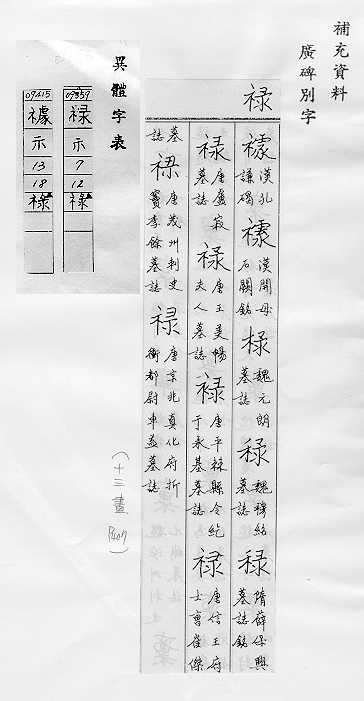 補充資料
廣碑別字
祿
漢孔謙碣
漢開母石闕銘
魏元朗墓誌
魏穆紹墓誌
隋薛保興墓誌銘
禄
唐盧寂墓誌
禄
唐王美暢夫人墓誌
唐平棘縣令紇于承基墓誌
禄
唐信王府士曹崔傑墓誌
唐茂州刺史竇季餘墓誌
禄
唐京兆真化府折衝都尉車益墓誌
(十三畫 P407)
異體字表
09359
禄
示
7
12
祿
09415
示
13
18
祿